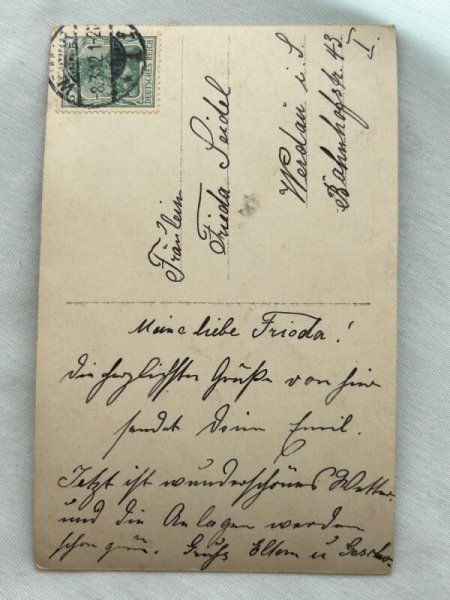 8.3.12. 1-2
DEUTSCHES REICH
Fräulein
Frieda Seidel
Werdau i. S.
Bahnhofstr. 43 I
Meine liebe Frieda!
Die herzlichsten Grüße von hier
sendet Deine Emil.
Jetzt ist wunderschönes Wetter
und die Anlagen werden
schon grün. Gruß Eltern u Geschw.